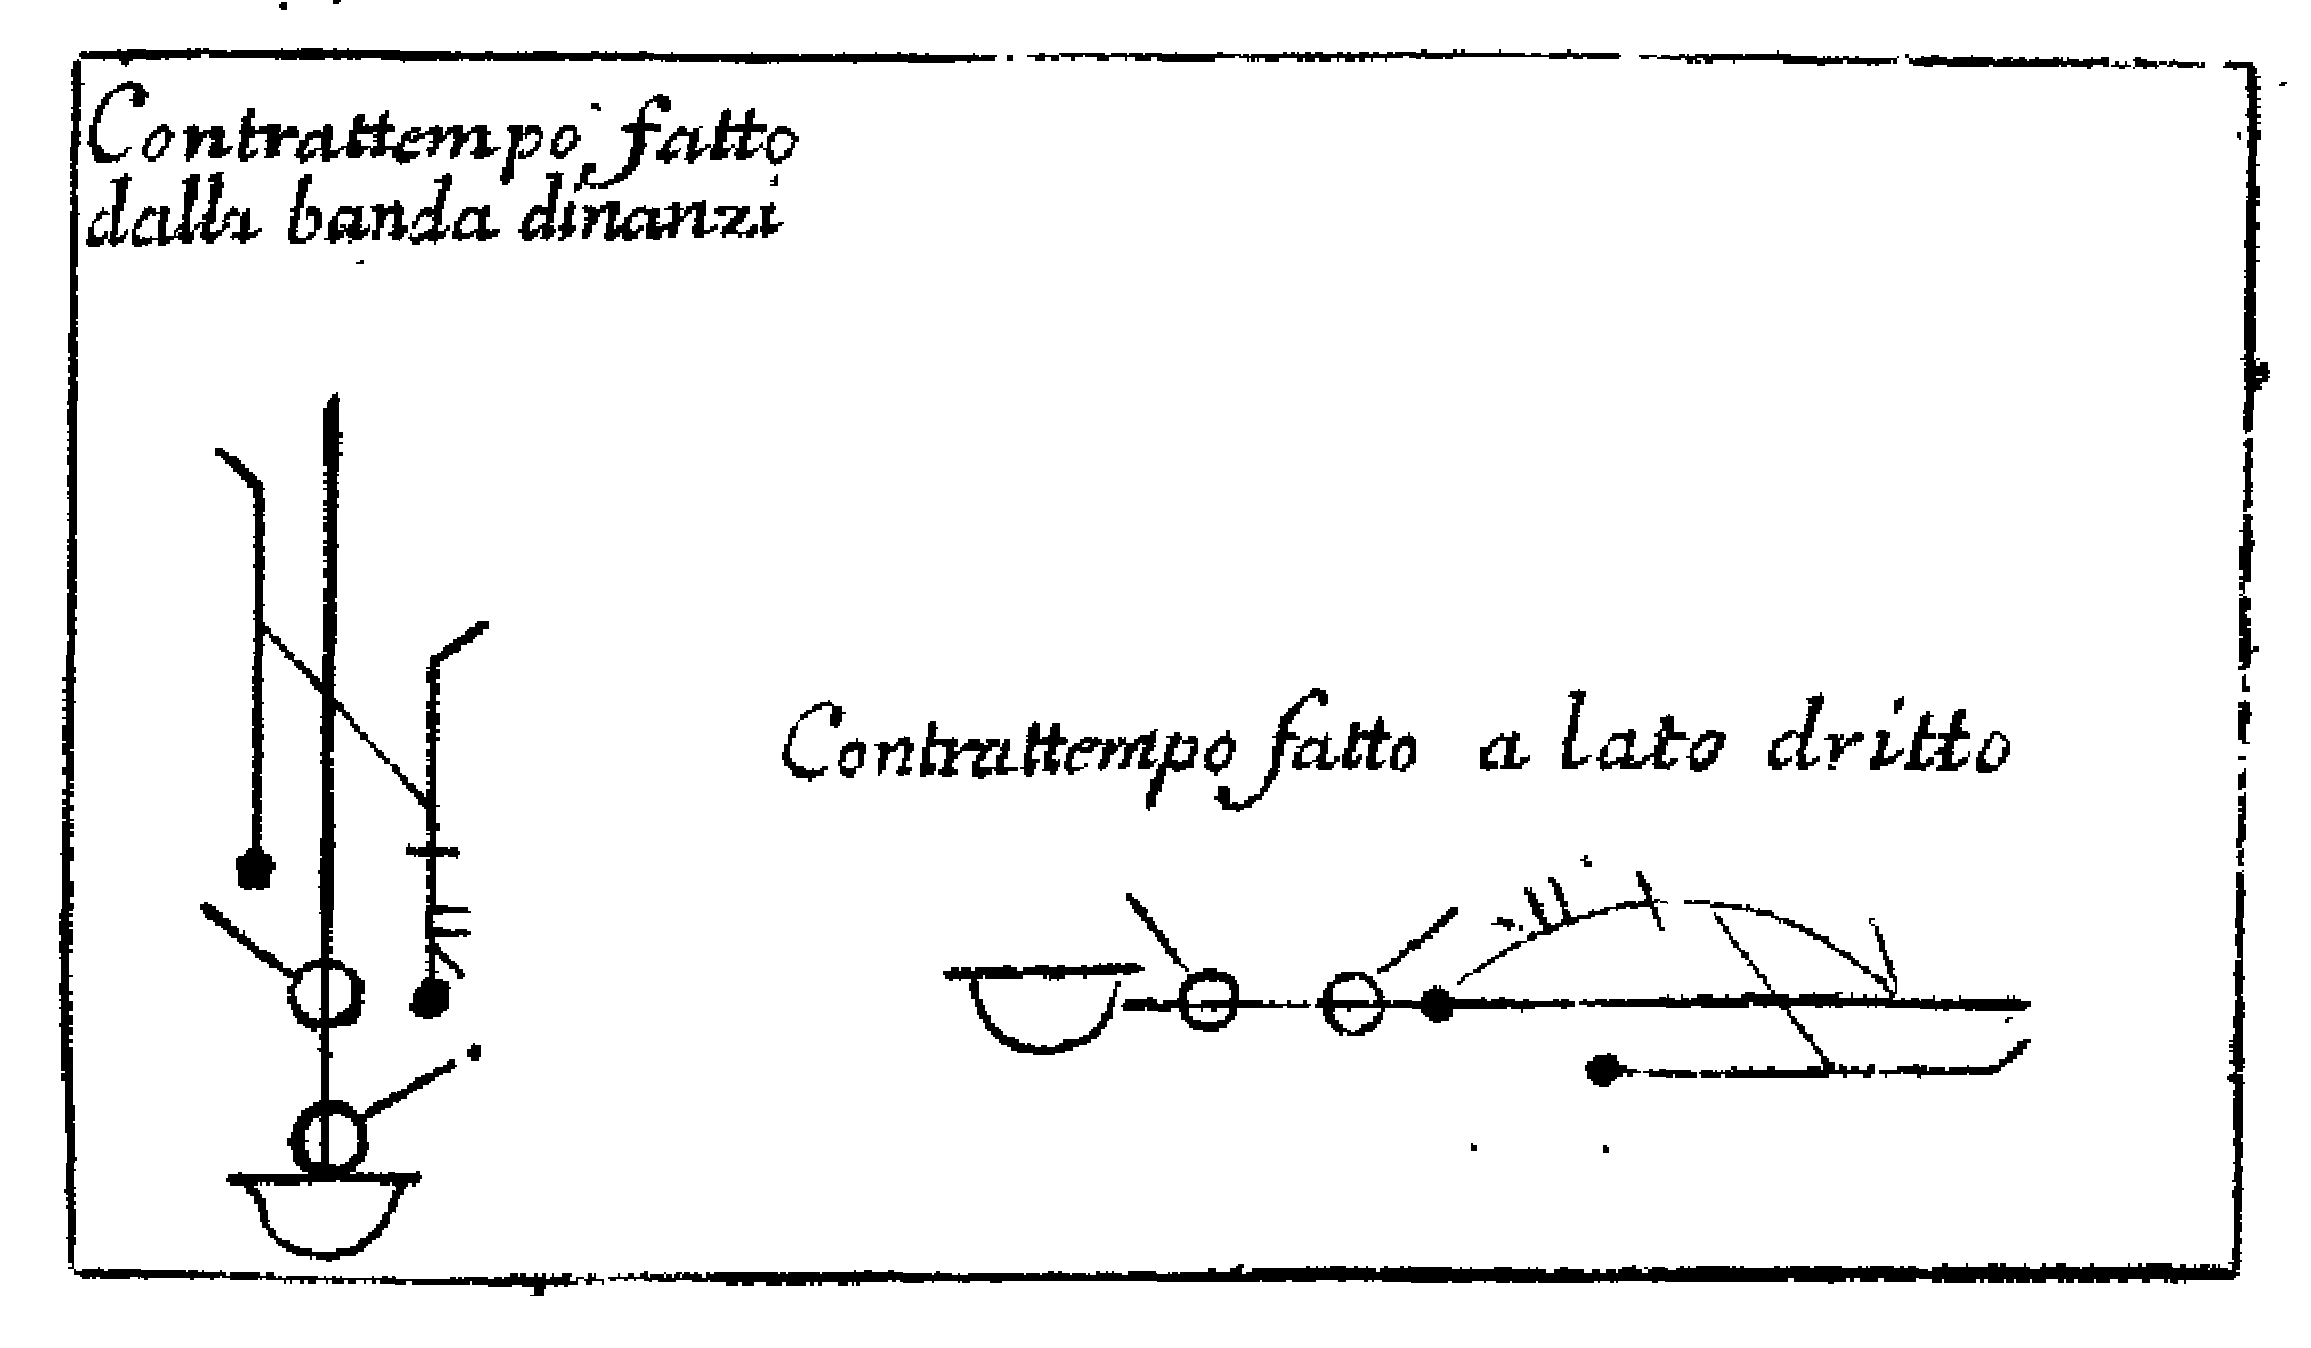 Contrattempo fatto
dalla banda dinanzi
Contrattempo fatto a lato dritto